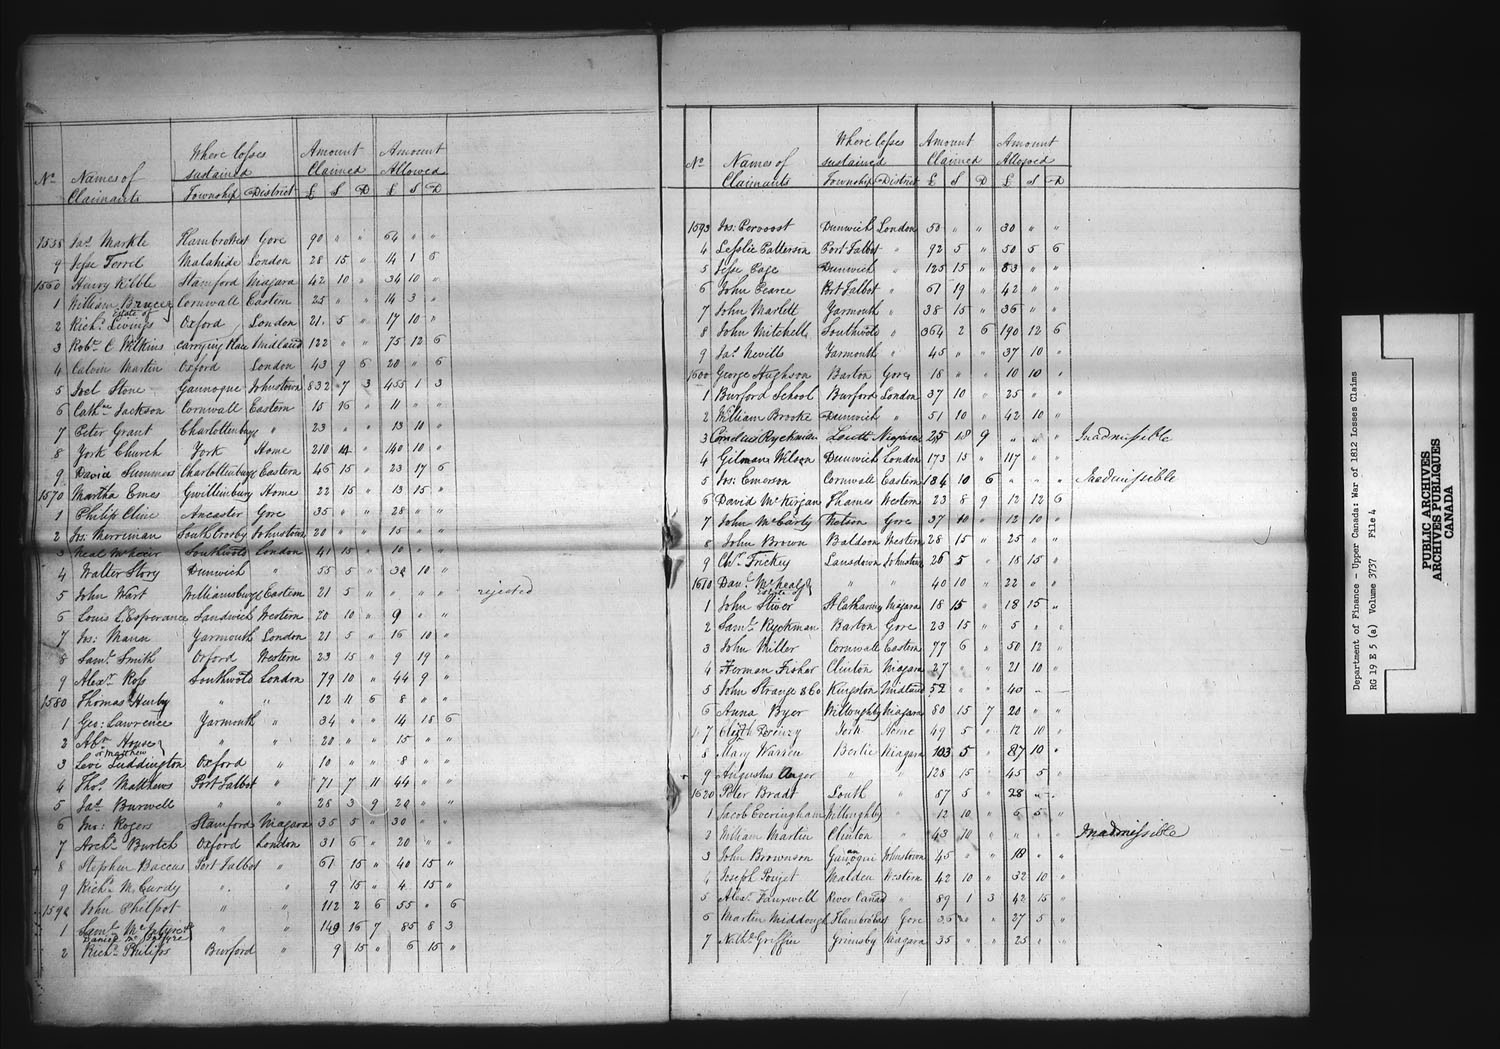 No. Names of Claimants Where losses sustained Township District Amount Claimed £ S D Amount Allowed £ S D
1558 Jas. Markle Flambro West Gore 90 " " 64 " "
9 Jesse Terrel Malahide London 28 15 " 14 1 6
1560 Henry Kibble Stamford Niagara 42 10 " 34 10 "
1 William Bruce Cornwall Eastern 25 " " 14 3 "
Estate of
2 Richd. Livings Oxford London 21 5 " 17 10 "
3 Robt. C Wilkins Carrying Place Midland 122 " " 75 12 6
4 Calvin Martin Oxford London 43 9 6 20 " 6
5 Joel Stone Gannoque Johnstown 832 7 3 455 1 3
6 Cathne Jackson Cornwall Eastern 15 16 " 11 " "
7 Peter Grant Charlottenburg " 23 " " 13 10 "
8 York Church York Home 210 14 " 140 10 "
9 David Summers Charlottenburg Eastern 46 15 " 23 17 6
1570 Martha Emes Gwillimbury Home 22 15 " 13 15 "
1 Philip Cline Ancaster Gore 35 " " 28 " "
2 Jos: Merriman South Crosby Johnstown 20 " " 15 " "
3 Neal McNair Southwold London 41 15 " 10 " "
4 Walter Story Dunwich " 55 5 " 10 "
5 John Wart Williamsburg Eastern 21 5 " " " " rejected
6 Louis L'Esperance Sandwich Western 20 10 " 9 " "
7 Jos: Mann Yarmouth London 21 5 " 16 10 "
8 Saml. Smith Oxford Western 23 15 " 9 19 "
9 Alexr. Ross Southwold London 79 10 " 44 9 "
1580 Thomas Henby " " 12 11 6 8 " "
1 Geo: Lawrence Yarmouth " 34 " " 14 18 6
2 Abm House " " 20 " " 15 " "
or Matthew
3 Levi Luddington Oxford " 10 " " 8 " "
4 Thos. Matthews Port Talbot " 71 7 11 44 " "
5 Jas. Burwell " " 28 3 9 20 " "
6 Jno: Rogers Stamford Niagara 35 5 " 30 " "
7 Archd. Burtch Oxford London 31 6 " 20 " "
8 Stephen Baccus Port Talbot " 61 15 " 40 15 "
9 Richd. McCurdy " " 9 15 " 4 15 "
1590 John Philpot " " 112 2 6 55 " 6
1 Saml. " " 149 16 7 85 8 3
Daniel McIntyre
2 Richd. Philips Burford " 9 15 " 6 15 "
No. Names of Claimants Where losses sustained Township District Amount Claimed £ S D Amount Allowed £ S D
1593 Jos: Pervoost Dunwich London 50 " " 30 " "
4 Leslie Patterson Port Talbot " 92 5 " 50 5 6
5 Jesse Page Dunwich " 125 15 " 83 " "
6 John Pearce Port Talbot " 61 19 " 42 " "
7 John Marlett Yarmouth " 38 15 " 36 " "
8 John Mitchell Southwold " 364 2 6 190 12 6
9 Jas. Neville Yarmouth " 45 " " 37 10 "
1600 George Hughson Barton Gore 18 " " 10 10 "
1 Burford School Burford London 37 10 " 25 " "
2 William Brooke Dunwich " 51 10 " 42 10 "
3 Cornelius Ryckman Louth Niagara 25 18 9 " " " Inadmissible
4 Gilman Wilson Dunwich London 173 15 " 117 " "
5 Jos: Emerson Cornwall Eastern 184 10 6 " " " Inadmissible
6 David McKirgan Thames Western 23 8 9 12 12 6
7 John McCarty Nelson Gore 37 10 " 12 10 "
8 John Brown Baldoon Western 28 15 " 25 " "
9 Chr. Frickey Lansdown Johnstown 26 5 " 18 15 "
1610 Danl. McNeal " " 40 10 " 22 " "
Estate of
1 John Stiver St Catharines Niagara 18 15 " 18 15 "
2 Saml. Ryckman Barton Gore 23 15 " 5 " "
3 John Miller Cornwall Eastern 77 6 " 50 12 "
4 Herman Fisher Clinton Niagara 27 " " 21 10 "
5 John Strange & Co Kingston Midland 52 " " 40 - -
6 Anna Byer Willoughby Niagara 80 15 7 20 " "
7 Elizth. York Home 49 5 " 12 10 "
8 Mary Warren Bertie Niagara 103 5 " 87 10 "
9 Augustus Anger " " 128 15 " 45 5 "
1620 Peter Bradt Louth " 87 5 " 28 " -
1 Jacob Everingham Willoughby " 12 10 " 6 5 "
2 William Martin Clinton " 43 10 " " " " Inadmissible
3 John Brownson Gananoqui Johnstown 45 " " 18 " "
4 Joseph Poujet Malden Western 42 10 " 32 10 "
5 Alexr. Fauxwell River Canad " 89 1 3 42 15 "
6 Martin Middough Flambro East Gore 36 " " 27 5 "
7 Nathl. Griffin Grimsby Niagara 35 " " 25 " "
Department of Finance - Upper Canada: War of 1812 Losses Claims
RG 19 E 5 (a) Volume 3737 File 4
PUBLIC ARCHIVES
ARCHIVES PUBLIQUES
CANADA